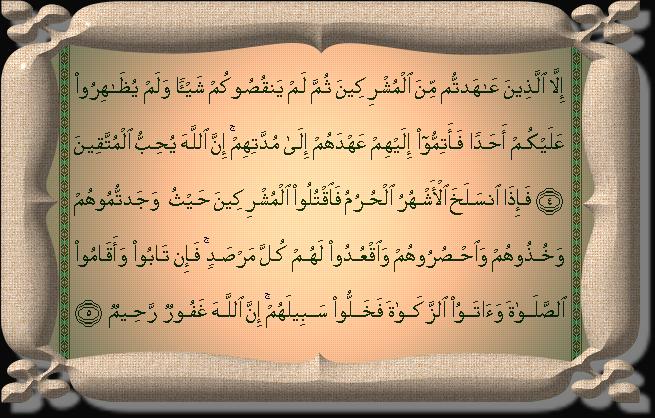 إِلَّا ٱلَّذِينَ عَـٰهَدتُّم مِّنَ ٱلْمُشْرِكِينَ ثُمَّ لَمْ يَنقُصُوكُمْ شَيْـًٔا وَلَمْ يُظَـٰهِرُوا۟
عَلَيْكُمْ أَحَدًا فَأَتِمُّوٓا۟ إِلَيْهِمْ عَهْدَهُمْ إِلَىٰ مُدَّتِهِمْ ۚ إِنَّ ٱللَّهَ يُحِبُّ ٱلْمُتَّقِينَ
﴿٤﴾ فَإِذَا ٱنسَلَخَ ٱلْأَشْهُرُ ٱلْحُرُمُ فَٱقْتُلُوا۟ ٱلْمُشْرِكِينَ حَيْثُ وَجَدتُّمُوهُمْ
وَخُذُوهُمْ وَٱحْصُرُوهُمْ وَٱقْعُدُوا۟ لَهُمْ كُلَّ مَرْصَدٍ ۚ فَإِن تَابُوا۟ وَأَقَامُوا۟
ٱلصَّلَوٰةَ وَءَاتَوُا۟ ٱلزَّكَوٰةَ فَخَلُّوا۟ سَبِيلَهُمْ ۚ إِنَّ ٱللَّهَ غَفُورٌ رَّحِيمٌ ﴿٥﴾